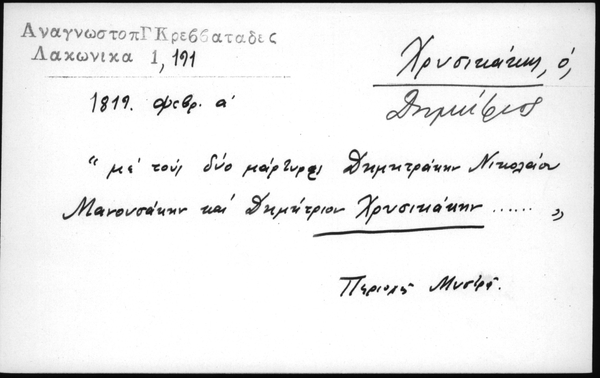 ΑναγνωστοπΓΚρεββαταδες
Λακωνικα 1, 191
Χρυσικάκης, ὁ,
Δημήτριος
1819. Φεβρ. α'
"μέ τούς δύο μάρτυρας Δημητράκην Νικολάου
Μανουσάκην καί Δημήτριον Χρυσικάκην ...... "
Περιοχή Μυστρᾶ.